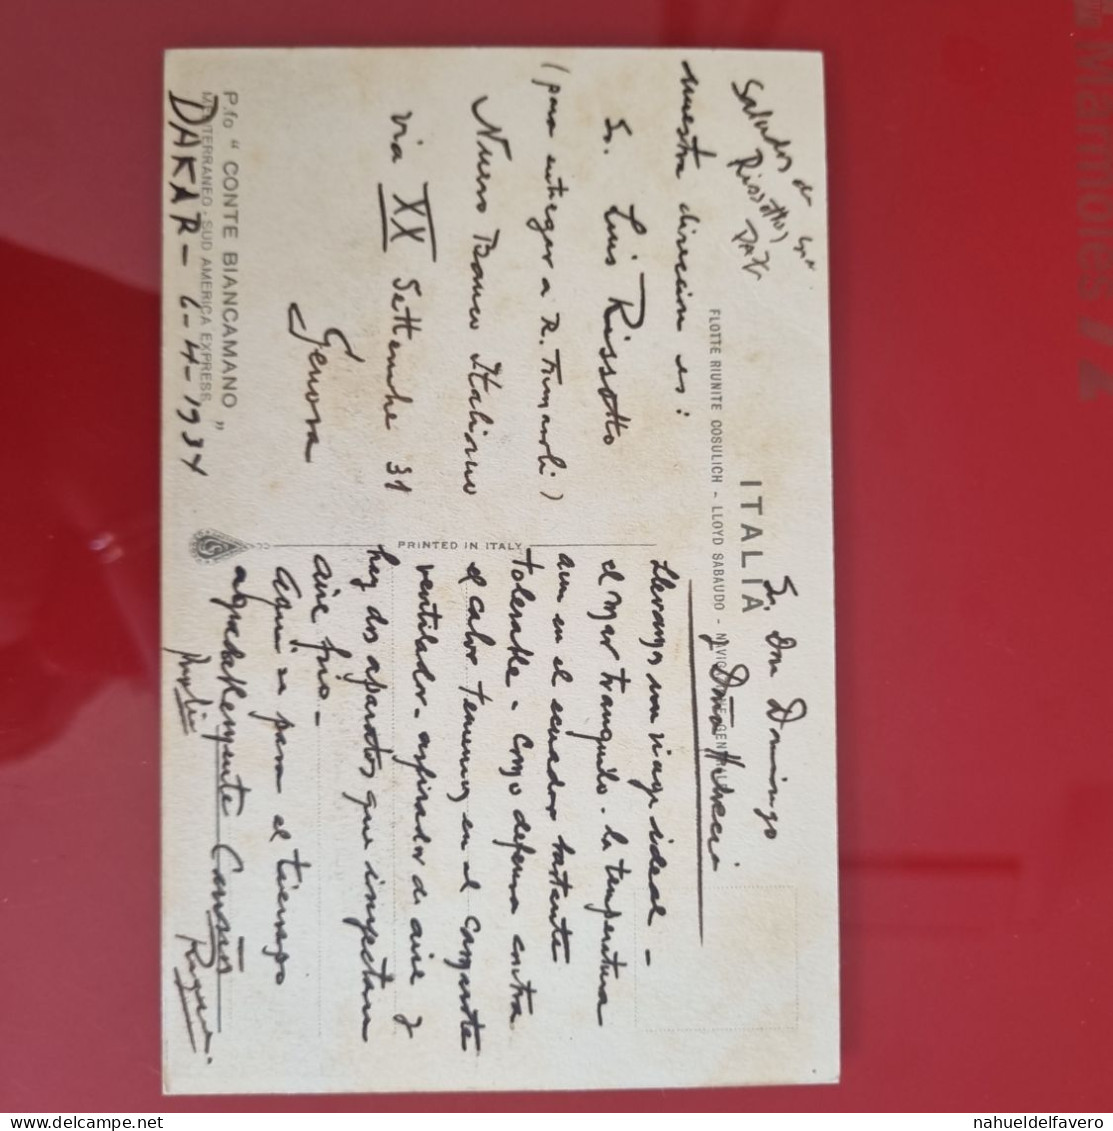 ITALIA
FLOTTE RIUNITE COSULICH - LLOYD SABAUDO - NAVIGAZIONE GENERALE
Saludos de
Rissotto y
nuestra direccion es:
Sr. Luis Rissotto
(para entregar a R. )
Nuevo Banco Italiano
Via XX Settembre 31
Genova
P.fo " CONTE BIANCAMANO "
MEDITERRANEO - SUD AMERICA EXPRESS
DAKAR - 6-4-1934
PRINTED IN ITALY
Sr. Don Domingo
y Dña
Llevamos un viaje ideal -
el mar tranquilo. la temperatura
aun en el ecuador bastante
tolerable - como defensa contra
el calor tenemos en el camarote
ventilador - aspirador de aire y
hay dos aparatos que inyectan
aire frio -
Aqui se pasa el tiempo
agradablemente
nahueldelfavero